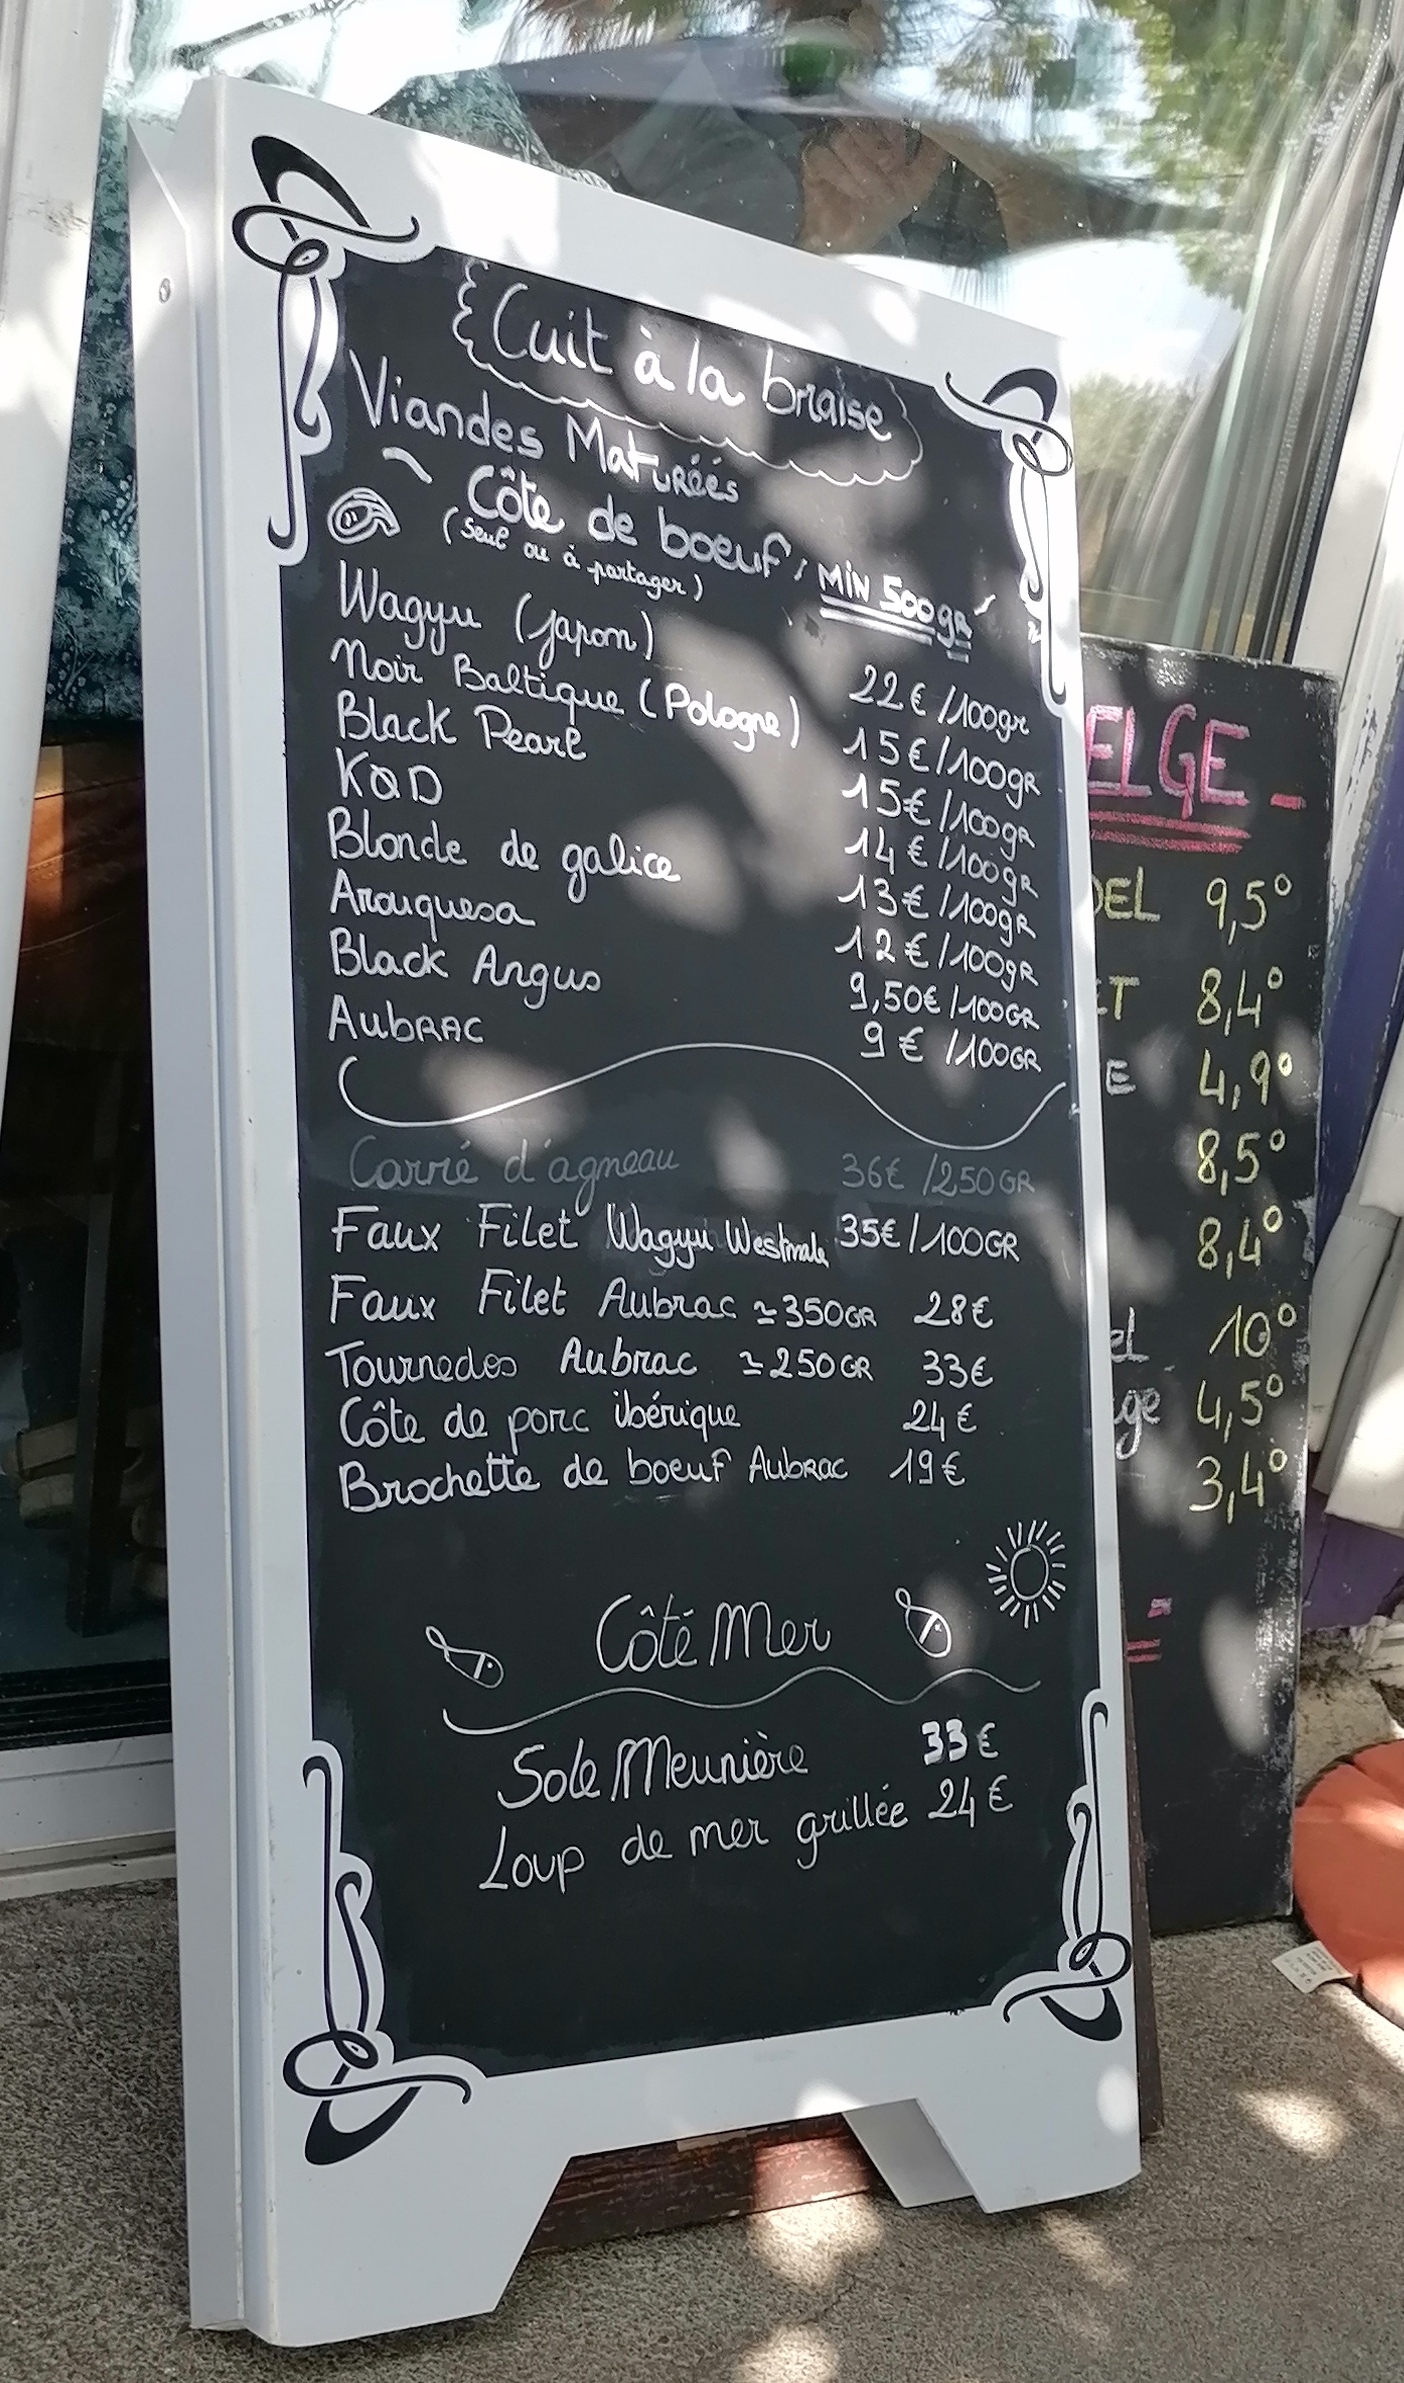 Cuit à la braise
Viandes Maturéés
Côte de boeuf, MIN 500gR
(seul ou à partager)
Wagyu (Japon) 22€/100gr
Noir Baltique (Pologne) 15€/100gR
Black Pearl 15€/100gR
KQD 14€/100gR
Blonde de galice 13€/100gR
Arouquesa 12€/100gR
Black Angus 9,50€/100GR
AUBRAC 9€/100GR
Carré d'agneau 36€/250GR
Faux Filet Wagyu 35€/100GR
Faux Filet Aubrac ≃350GR 28€
Tournedos Aubrac ≃250GR 33€
Côte de porc ibérique 24€
Brochette de boeuf AUBRAC 19€
Côté Mer
Sole Meunière 33€
Loup de mer grillée 24€
ELGE
DEL 9,5°
ET 8,4°
E 4,9°
8,5°
8,4°
el 10°
ge 4,5°
3,4°